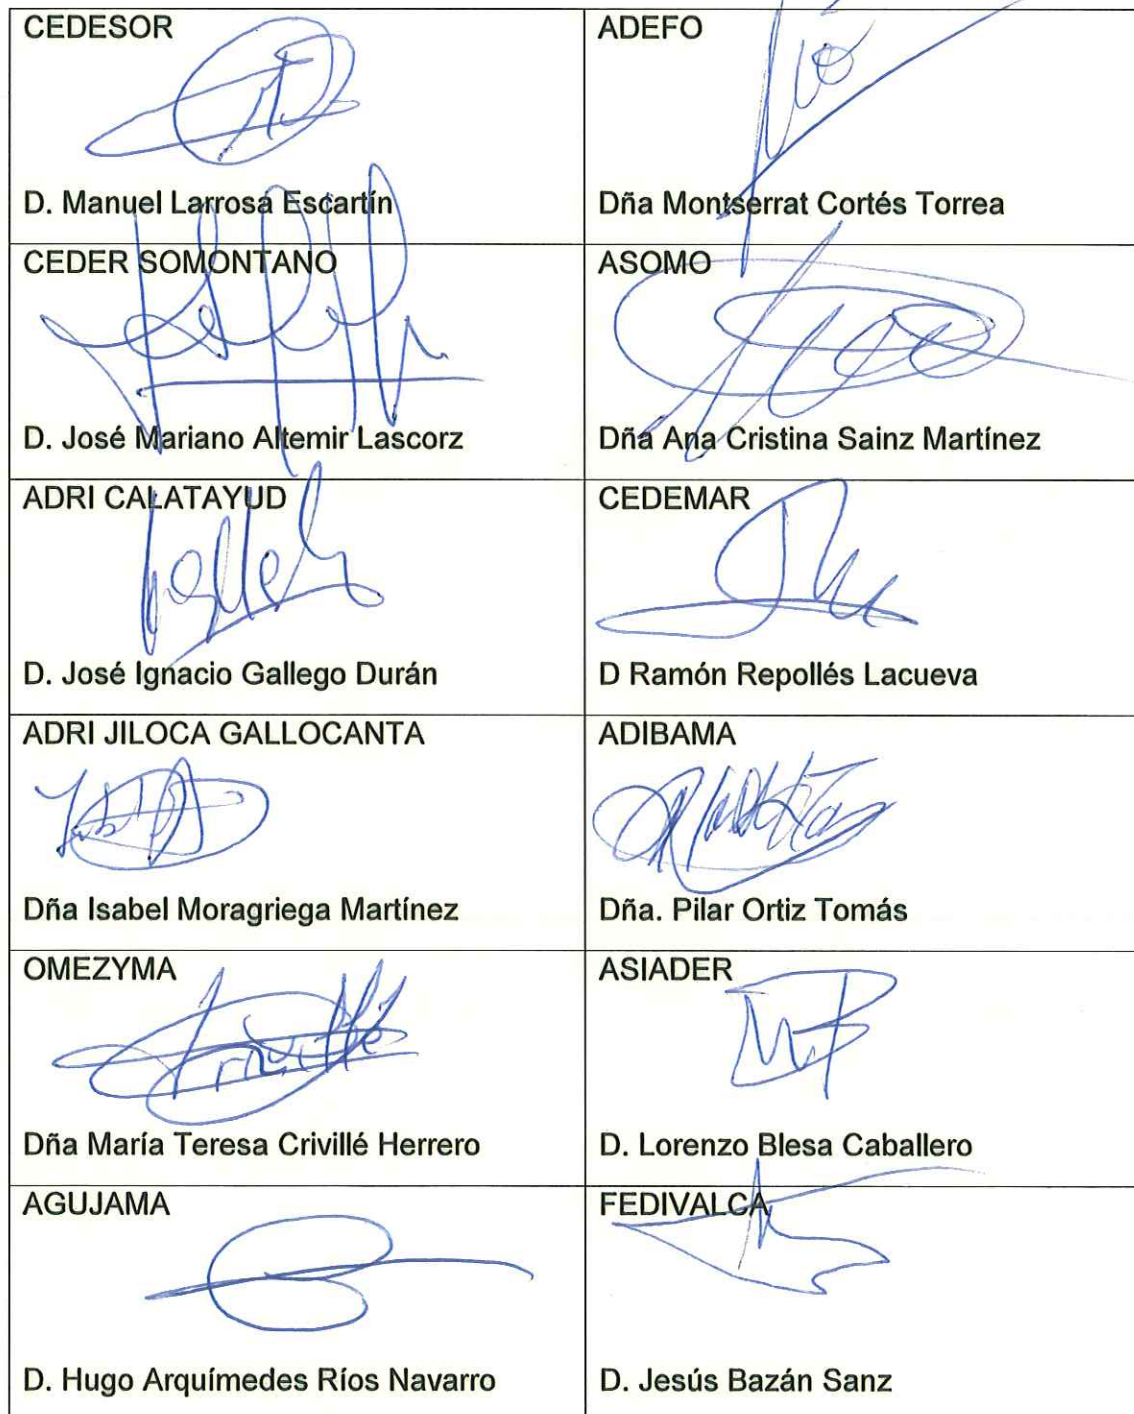 CEDESOR
D. Manuel Larrosa Escartín
ADEFO
Dña Montserrat Cortés Torrea
CEDER SOMONTANO
D. José Mariano Altemir Lascorz
ASOMO
Dña Ana Cristina Sainz Martínez
ADRI CALATAYUD
D. José Ignacio Gallego Durán
CEDEMAR
D Ramón Repollés Lacueva
ADRI JILOCA GALLOCANTA
Dña Isabel Moragriega Martínez
ADIBAMA
Dña. Pilar Ortiz Tomás
OMEZYMA
Dña María Teresa Crivillé Herrero
ASIADER
D. Lorenzo Blesa Caballero
AGUJAMA
D. Hugo Arquímedes Ríos Navarro
FEDIVALCA
D. Jesús Bazán Sanz